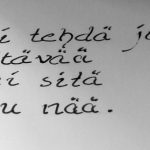 i tehdä jo
tävää
i sitä
u nää.